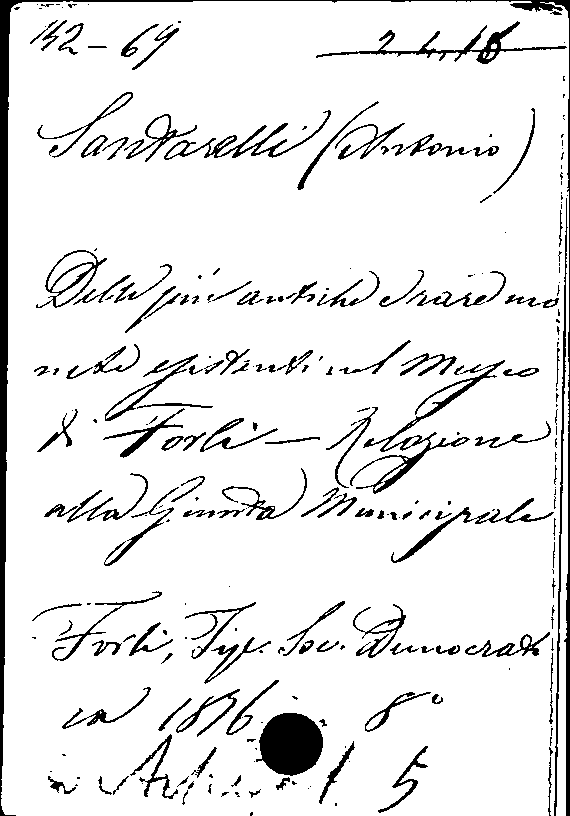 132-69 2.4.18
Santarelli (Antonio)
Delle più antiche e rare mo
nete esistenti nel Museo
di Forlì — Relazione
alla Giunta Municipale
Forlì, Tip. Soc. Democrati
ca 1896 8°
5